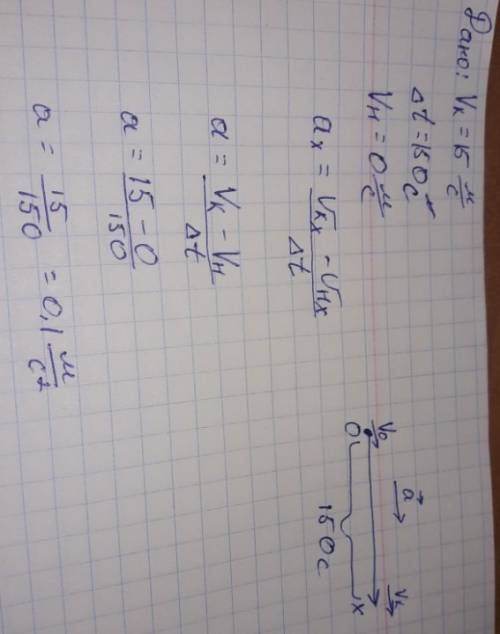 Дано: Vк = 15 м/с
Δt = 150 с
Vн = 0 м/с
aₓ = (Vкₓ - Vнₓ)/Δt
a = (Vк - Vн)/Δt
a = (15 - 0)/150
a = 15/150 = 0,1 м/с²
V₀ a⃗ Vк
0 x
150 с